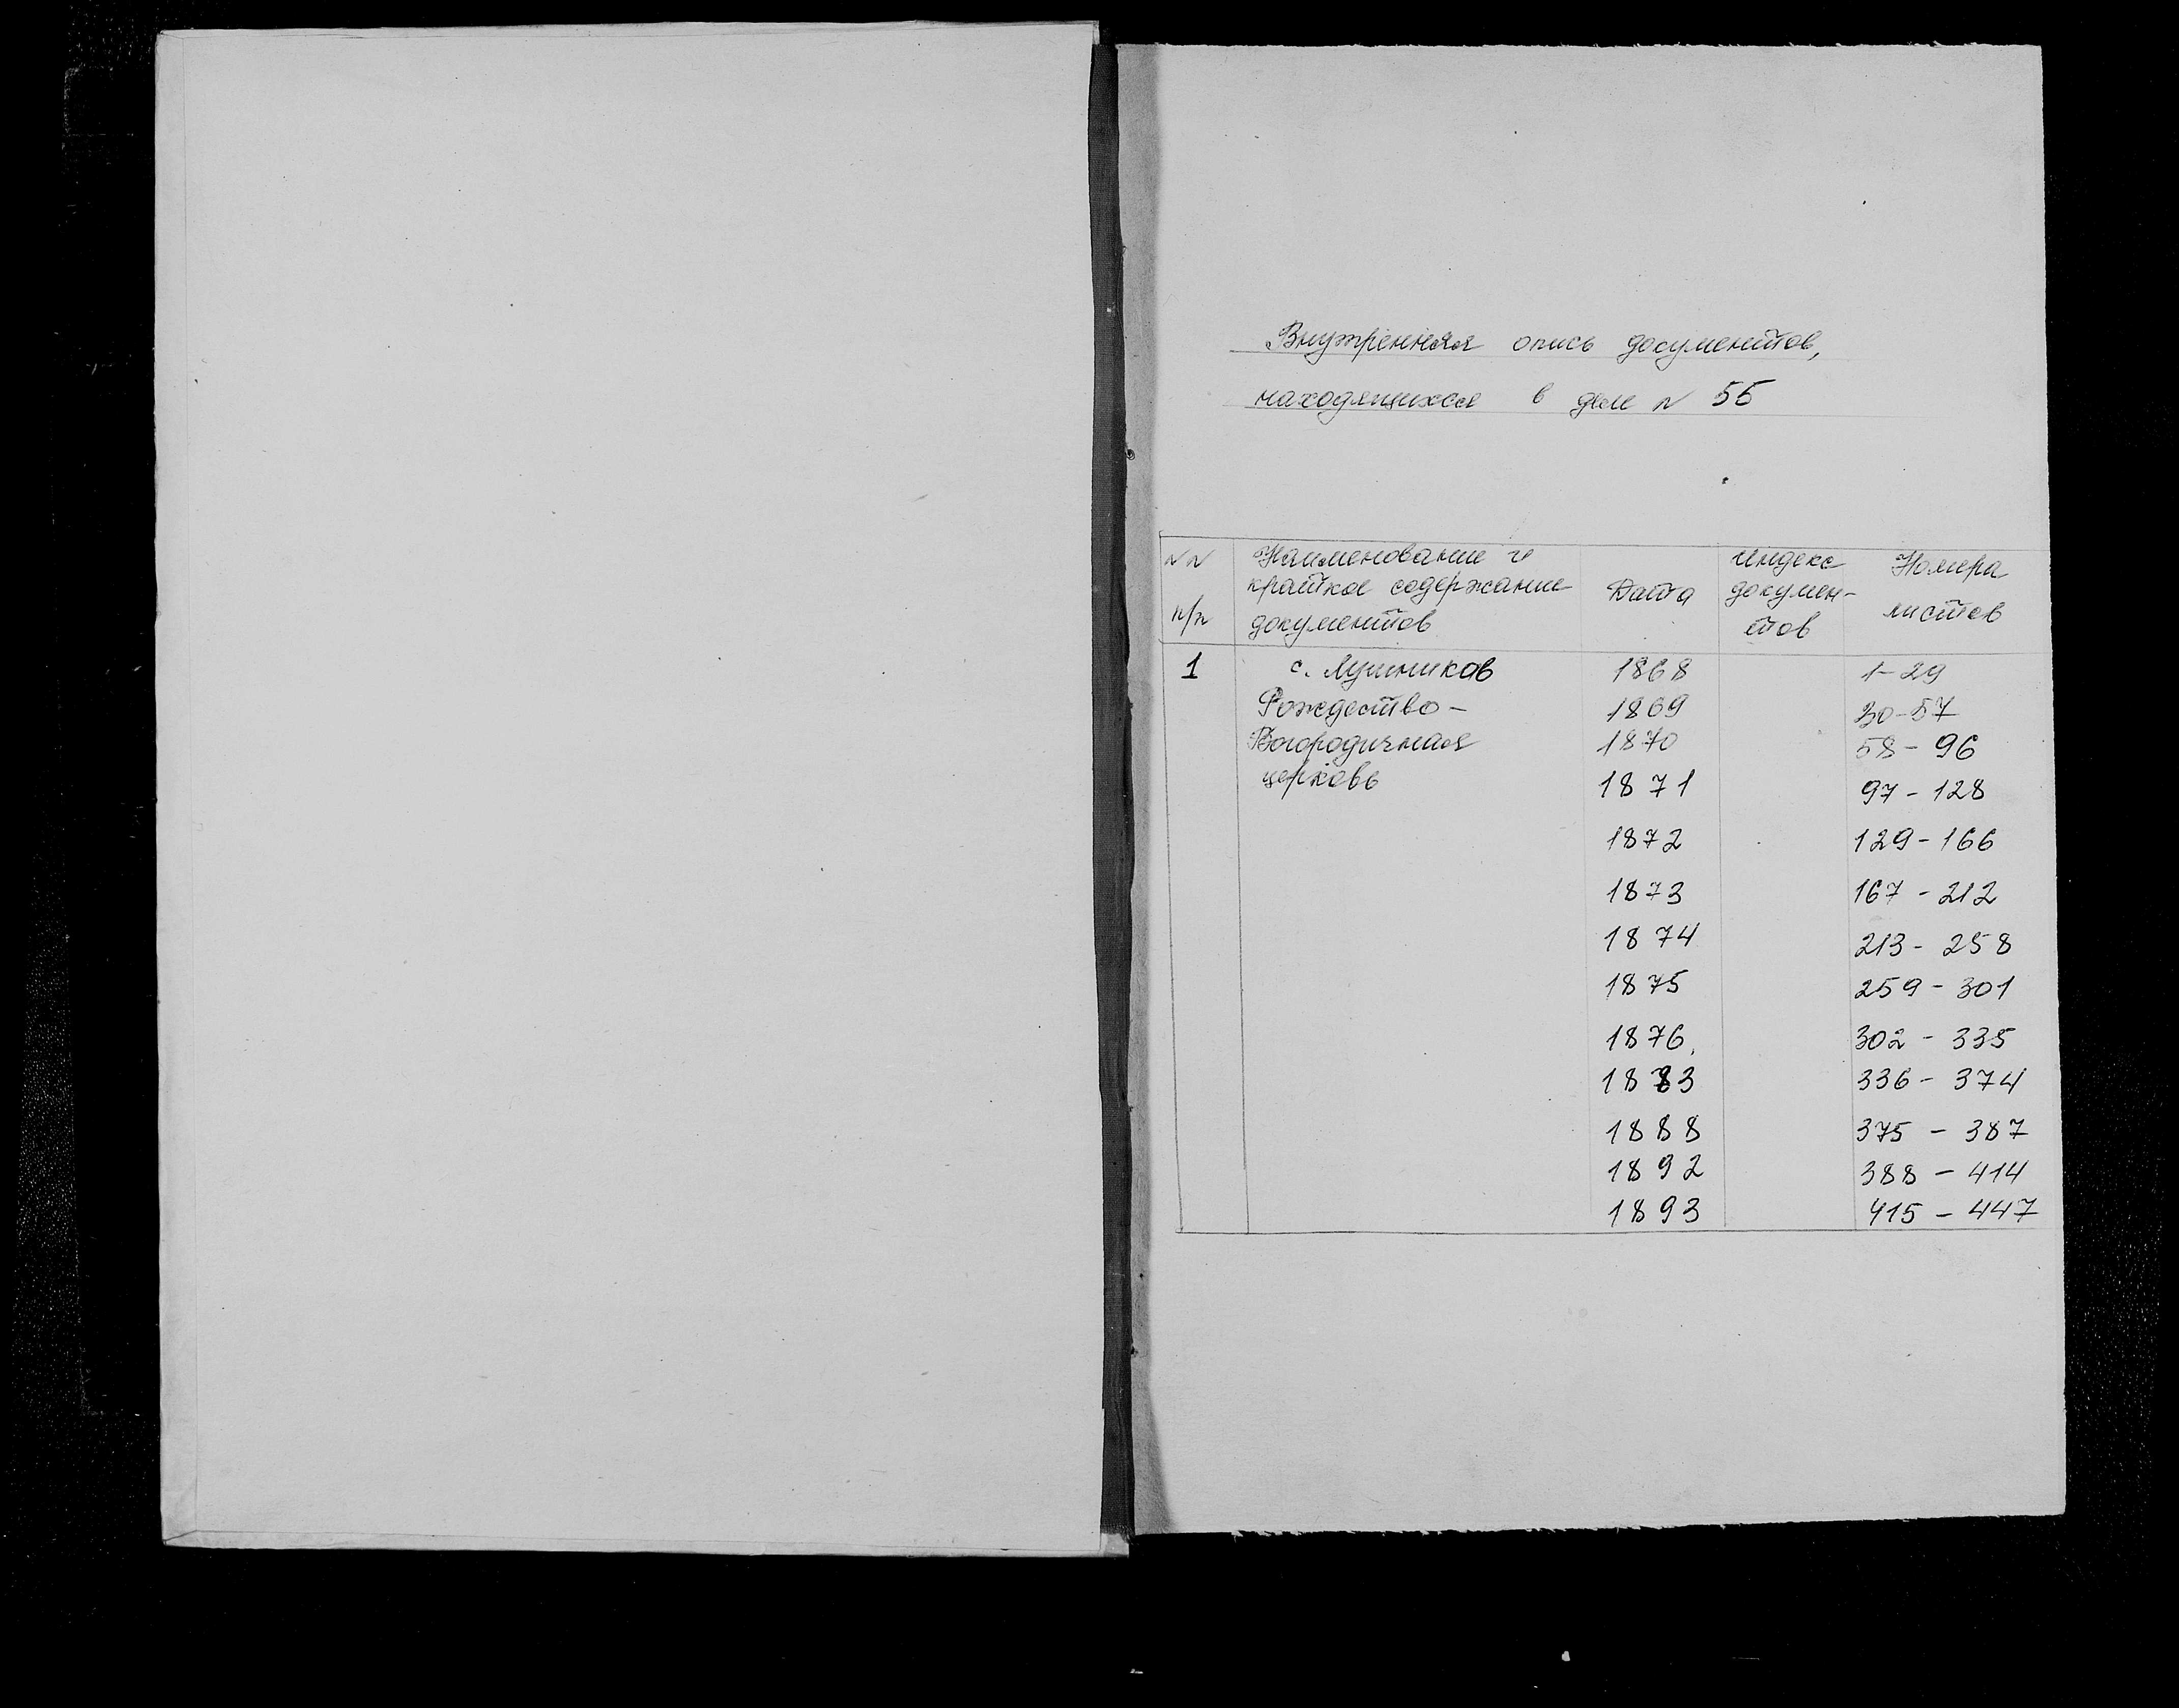 Внутренняя опись документов,
находящихся в деле № 55
№№ п/п Наименование и краткое содержание документов Дата индекс докумен-тов Номера листов
1 с. Лушников 1868 1-29
Рождество- 1869 30-57
Богородичная 1870 58-96
церковь 1871 97-128
1872 129-166
1873 167-212
1874 213-258
1875 259-301
1876 302-335
1883 336-374
1888 375-387
1892 388-414
1893 415-447